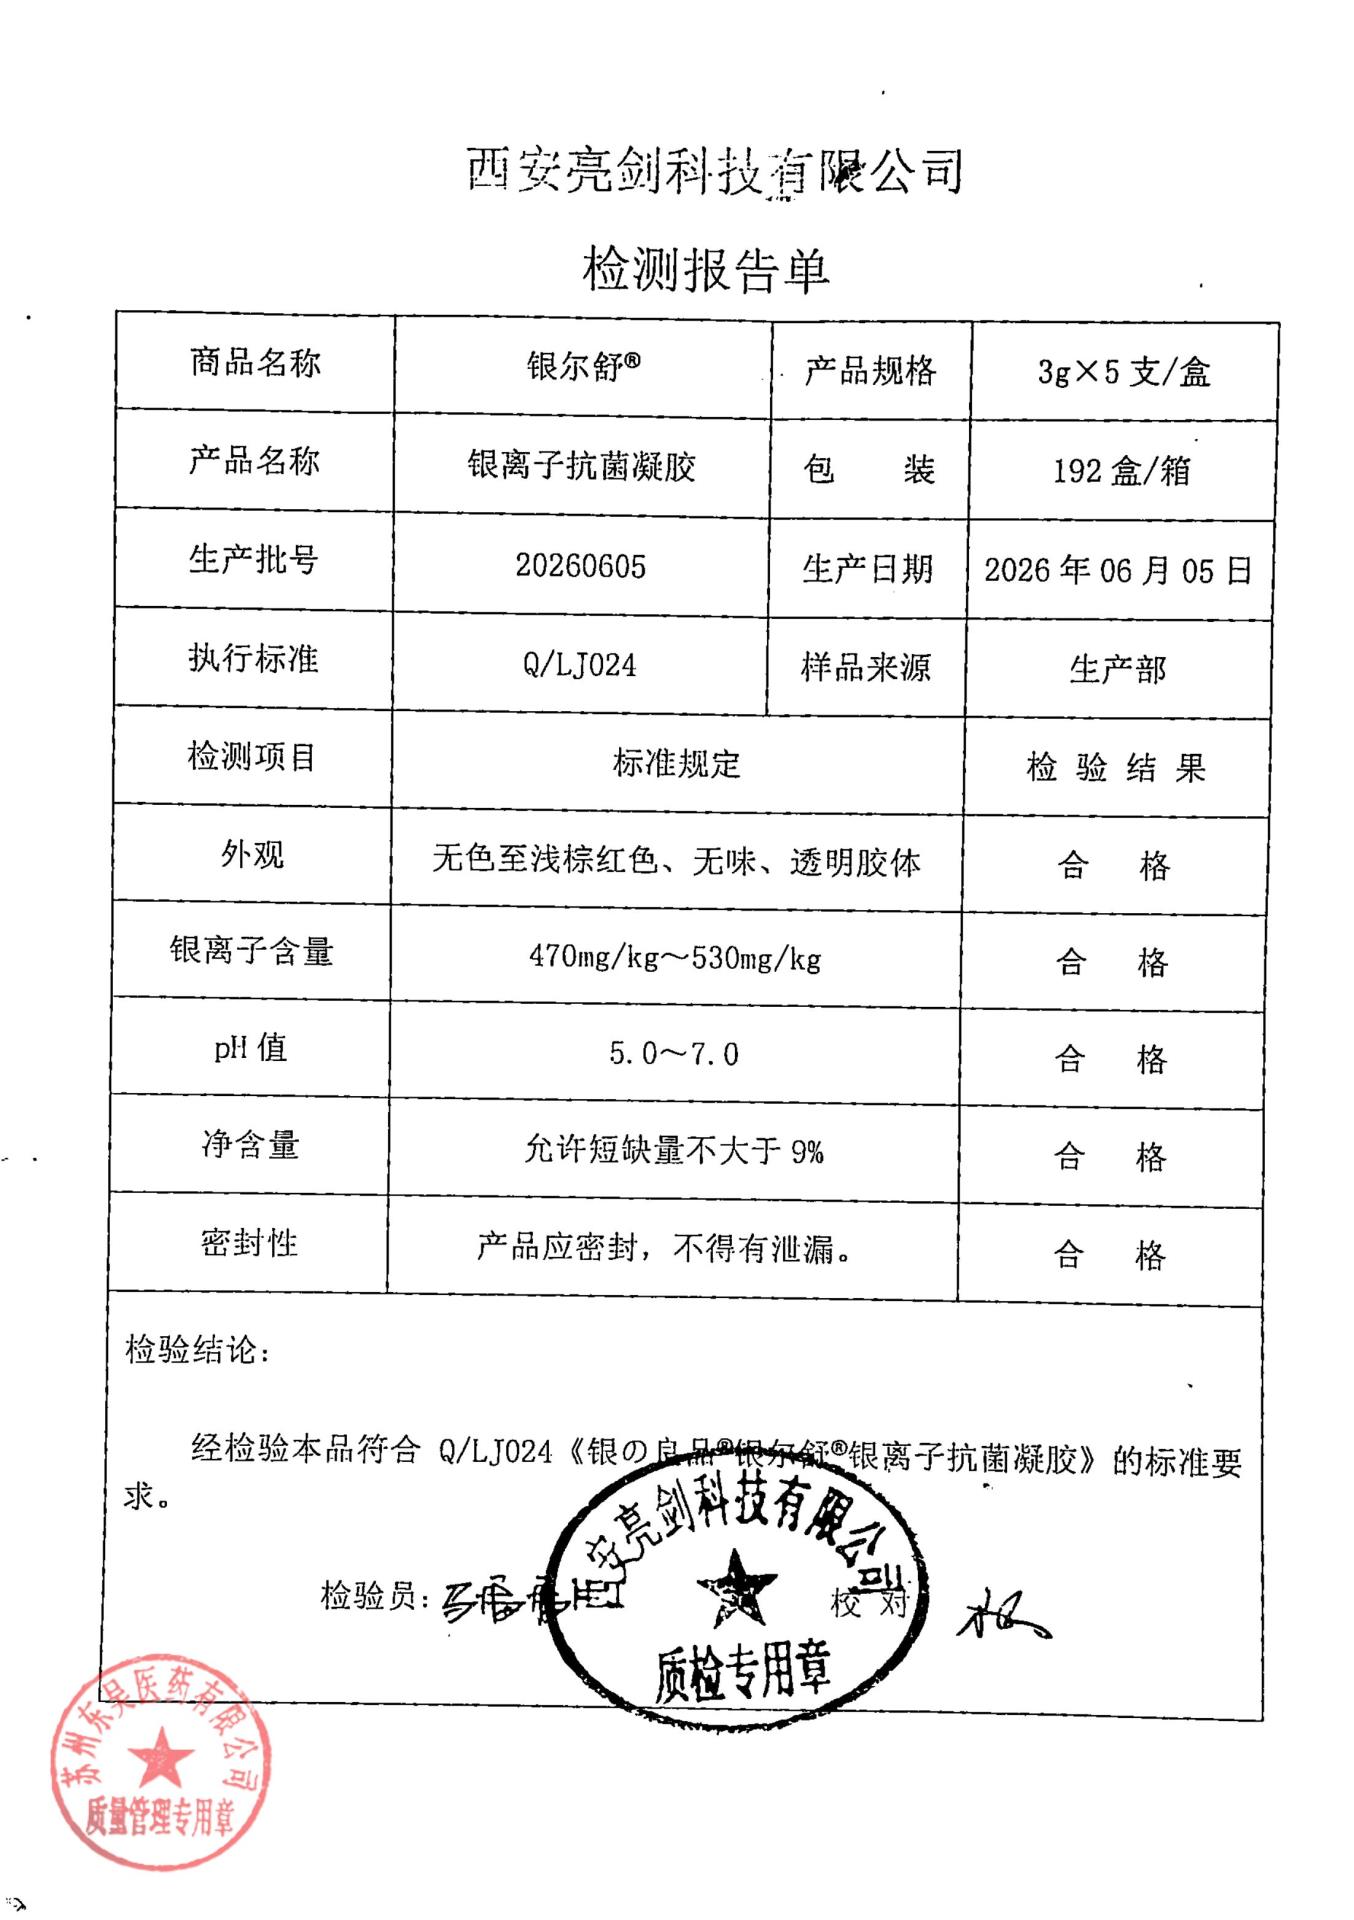 西安亮剑科技有限公司
检测报告单
商品名称 银尔舒® 产品规格 3g×5支/盒
产品名称 银离子抗菌凝胶 包 装 192盒/箱
生产批号 20260605 生产日期 2026年06月05日
执行标准 Q/LJ024 样品来源 生产部
检测项目 标准规定 检验结果
外观 无色至浅棕红色、无味、透明胶体 合 格
银离子含量 470mg/kg～530mg/kg 合 格
pH值 5.0～7.0 合 格
净含量 允许短缺量不大于9% 合 格
密封性 产品应密封，不得有泄漏。 合 格
检验结论：
经检验本品符合 Q/LJ024《银の良品®银尔舒®银离子抗菌凝胶》的标准要
求。
西安亮剑科技有限公司
检验员： 校对
质检专用章
苏州东吴医药有限公司
质量管理专用章